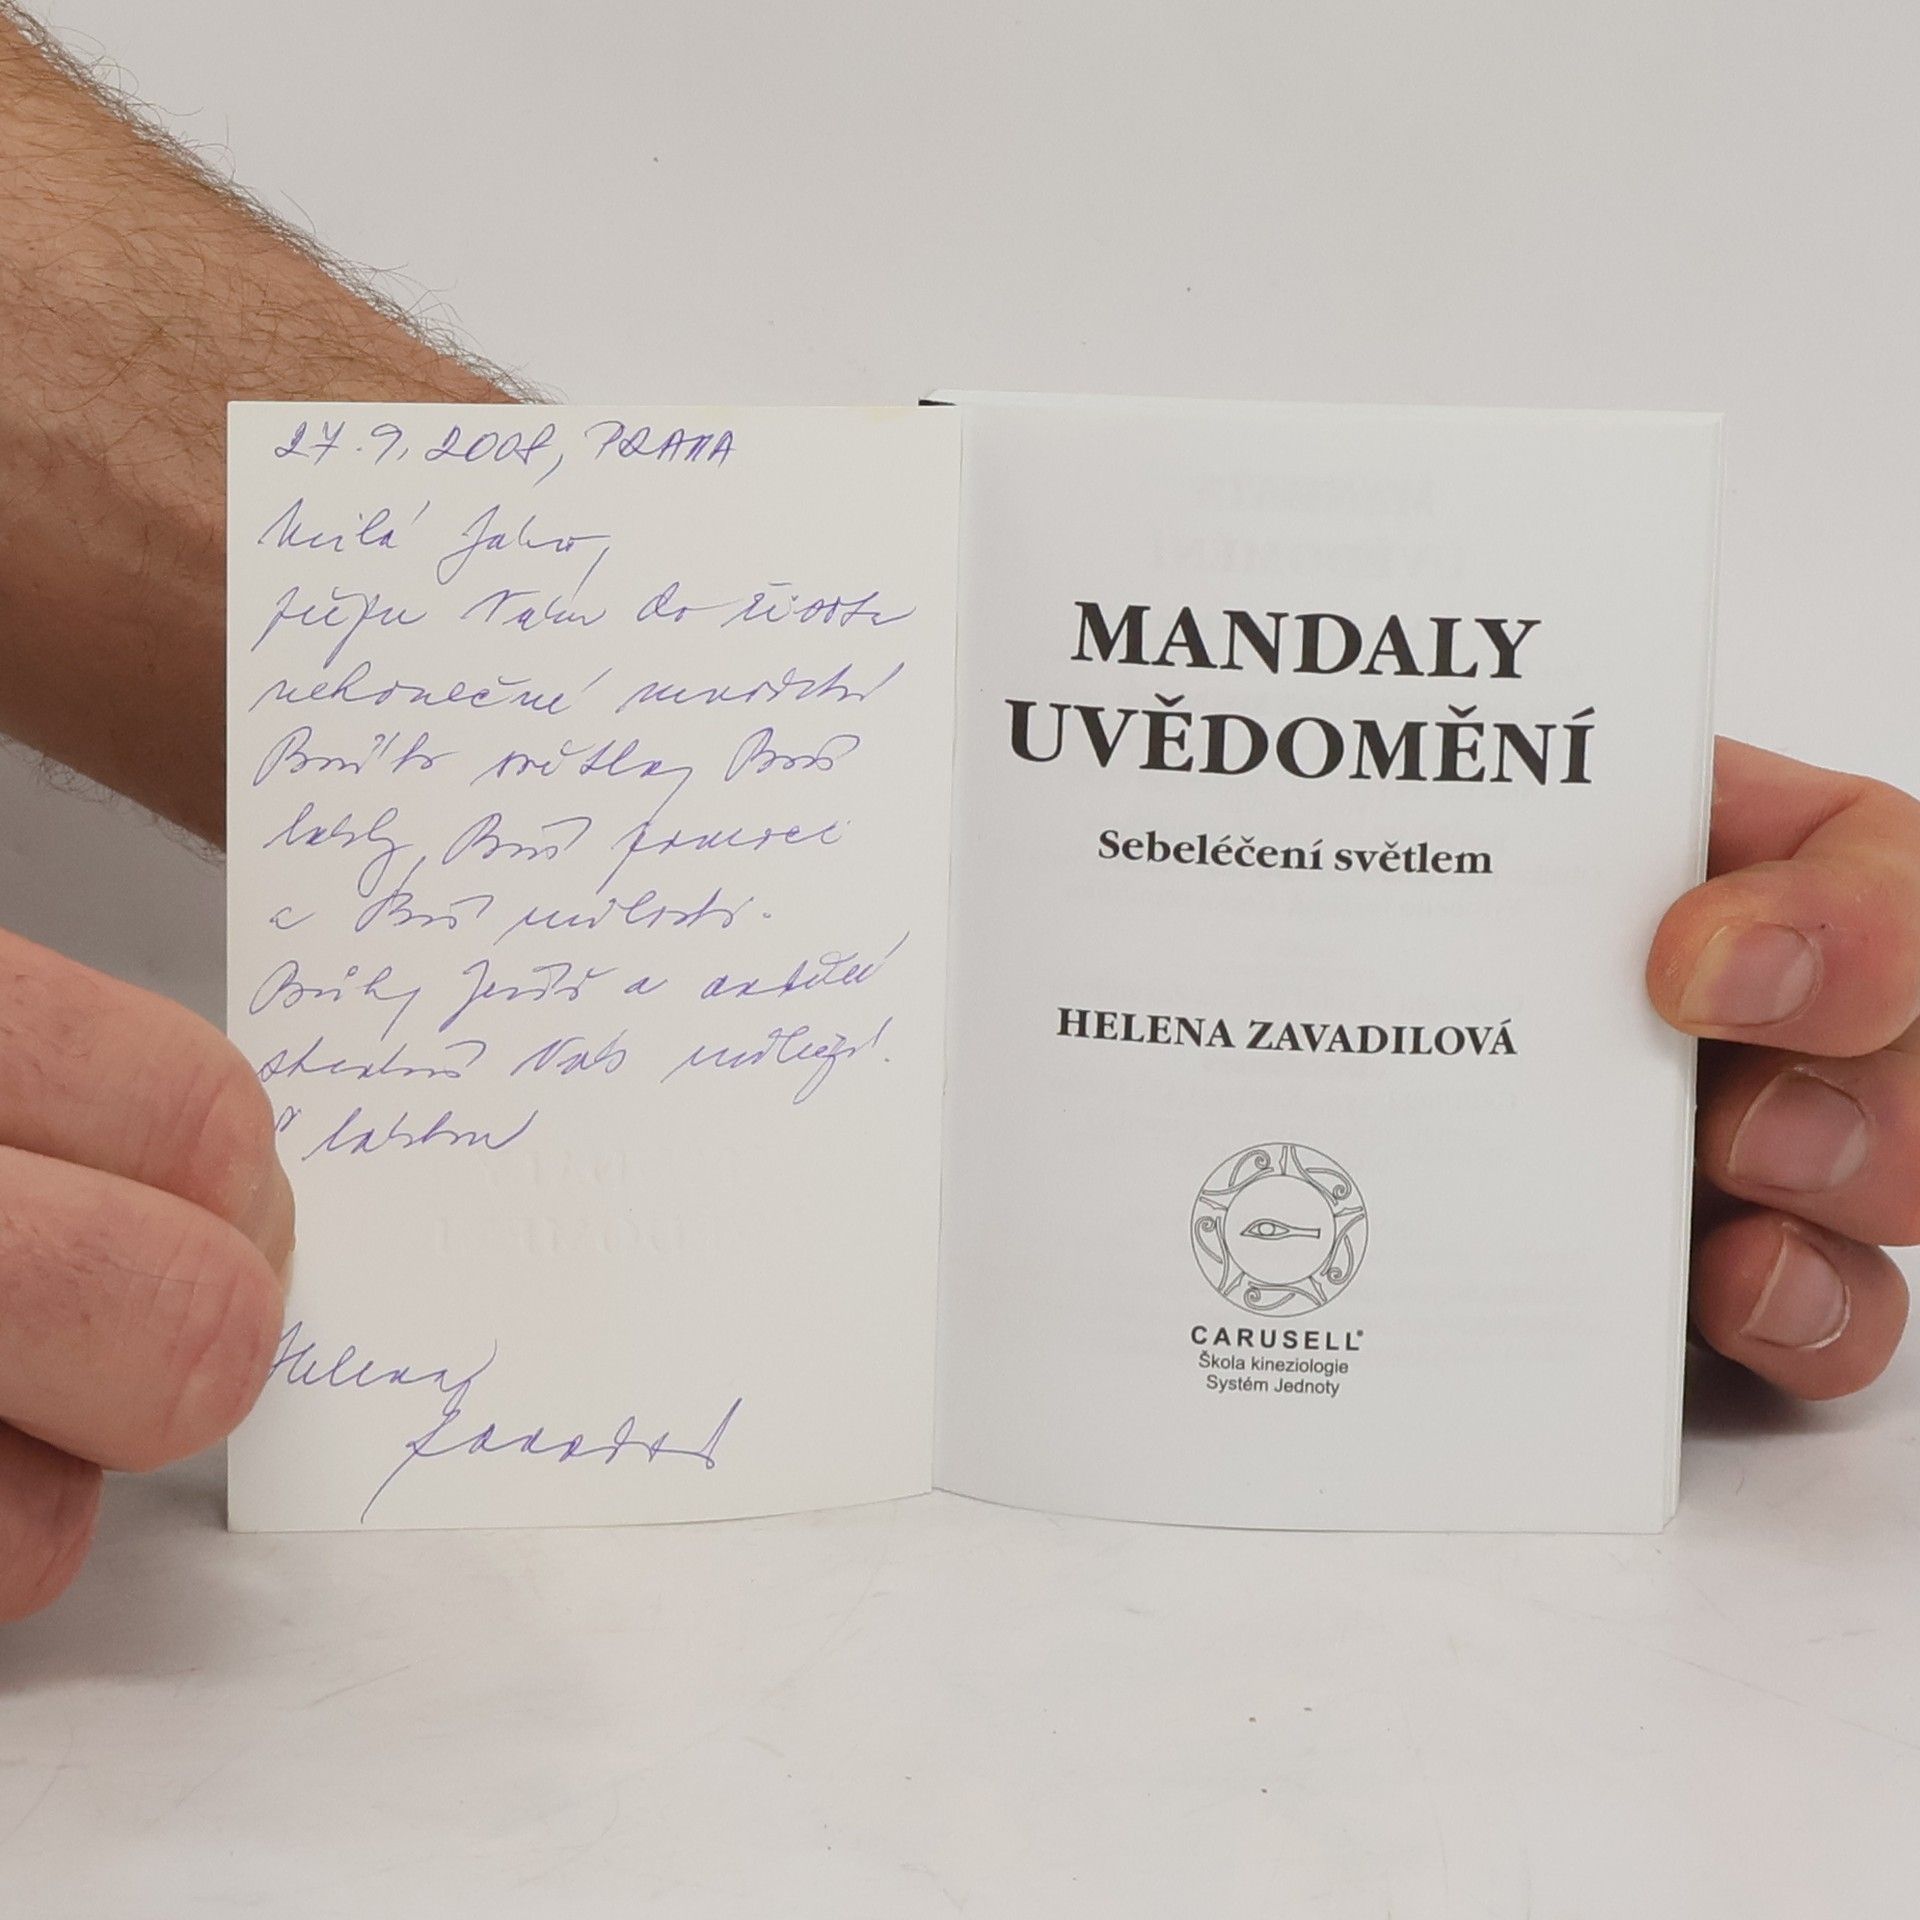 27. 9. 2008, PRAHA
Milá
přeju Vám do života
nekonečné množství
Božího světla, Boží
lásky, Boží pomoci
a Boží milosti.
Bůh, Ježíš a andělé
Vás milují.
S láskou
Helena
MANDALY
UVĚDOMĚNÍ
Sebeléčení světlem
HELENA ZAVADILOVÁ
CARUSELL®
Škola kineziologie
Systém Jednoty